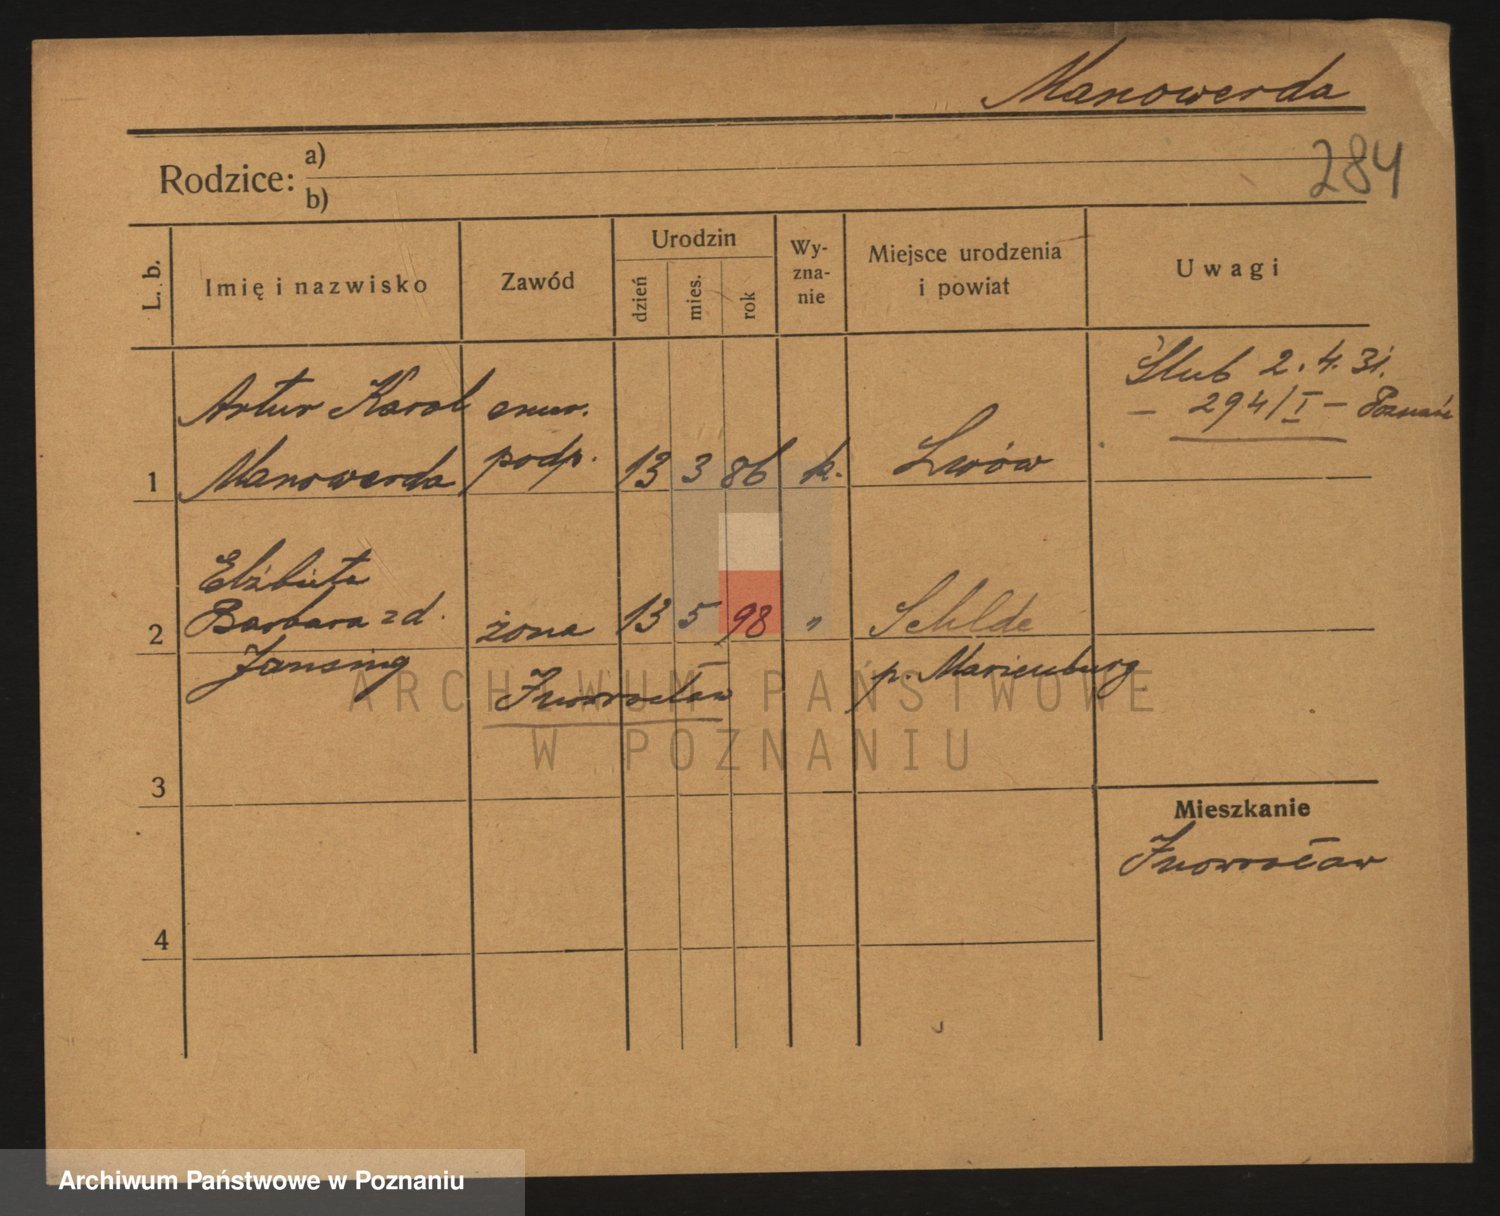 Manowerda
284
Rodzice: a)
b)
L. b.
Imię i nazwisko
Zawód
Urodzin
dzień
mies.
rok
Wy-
zna-
nie
Miejsce urodzenia
i powiat
Uwagi
1
Artur Karol
Manowerda
emer.
podp.
13
3
86
k.
Lwów
Ślub 2.4.31.
— 294/I — Poznań
2
Elżbieta
Barbara z d.
Jansing
żona
13
5
98
"
p. Marienburg
Inowrocław
3
Mieszkanie
Inowrocław
4
ARCHIWUM PAŃSTWOWE
W POZNANIU
Archiwum Państwowe w Poznaniu